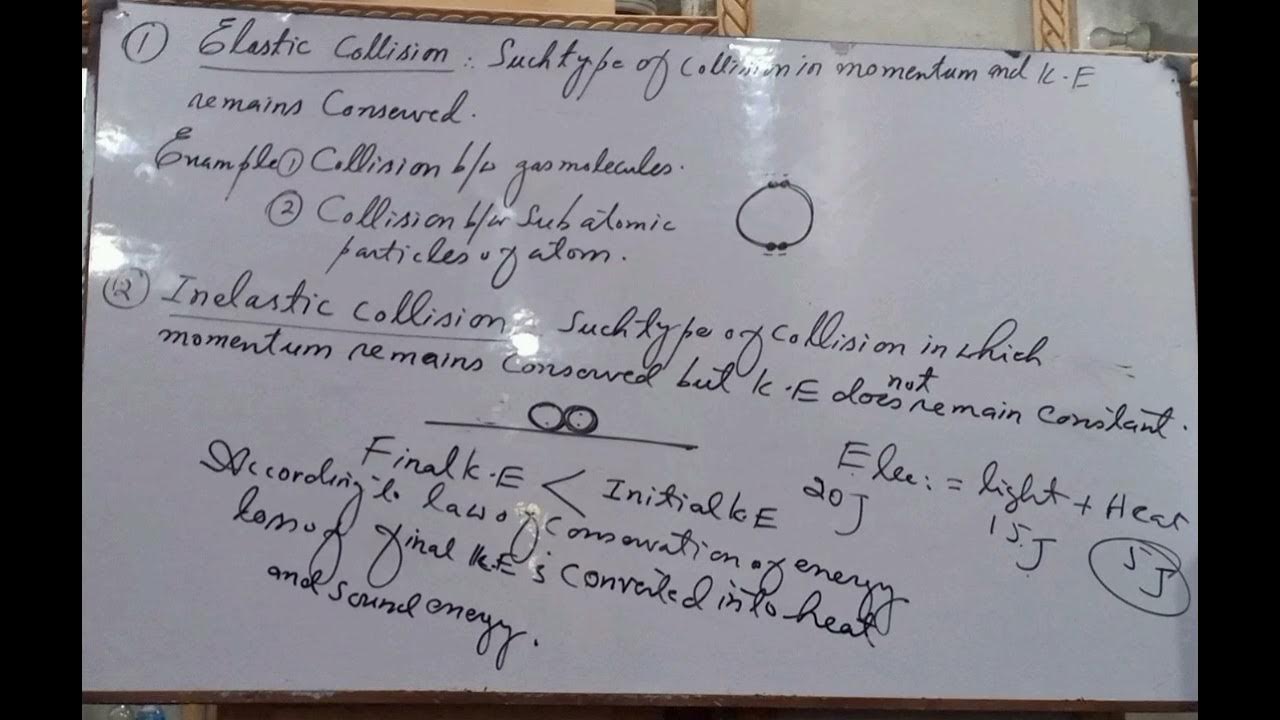 ① Elastic Collision : Such type of Collision in momentum and K.E
remains Conserved.
Example ① Collision b/w gas molecules.
② Collision b/w Sub atomic
particles of atom.
② Inelastic Collision : Such type of Collision in which
momentum remains Conserved but K.E does not remain Constant.
Final K.E < Initial K.E
According to law of Conservation of energy
loss of final K.E is Converted into heat
and sound energy.
Elec: = light + Heat
20J 15J 5J